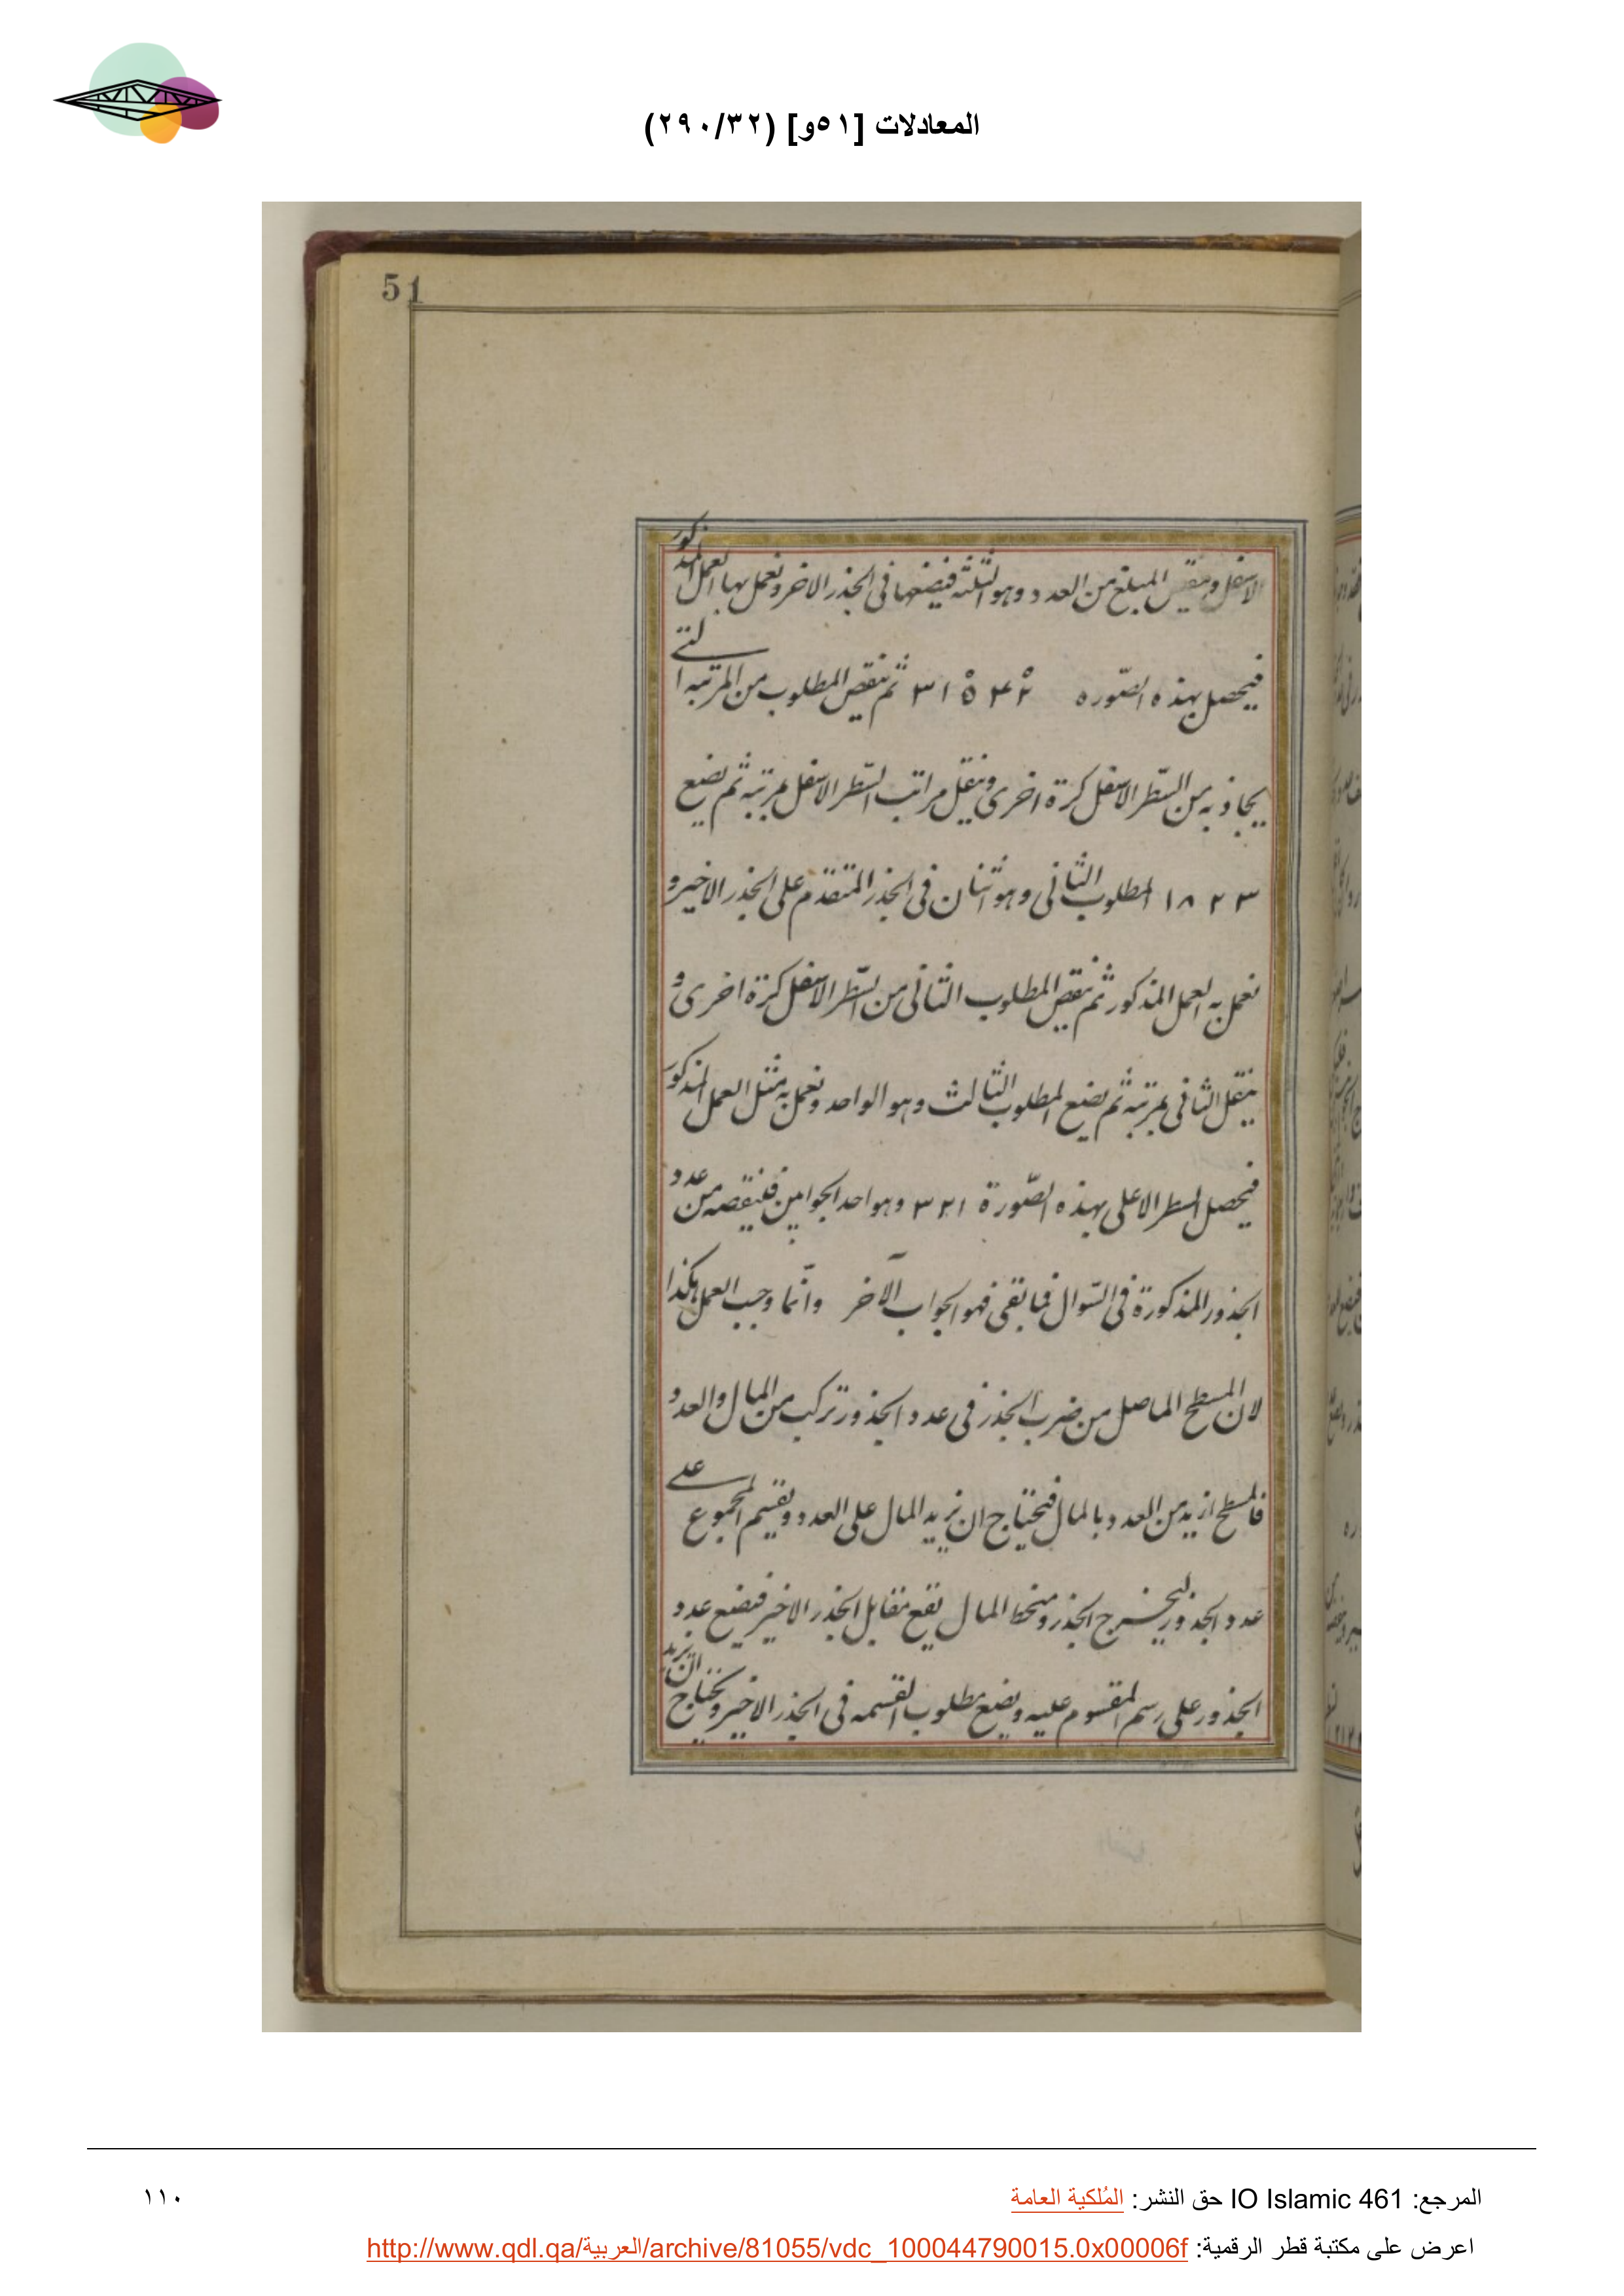 المعادلات [٥١و] (٢٩٠/٣٢)
51
الاسفل وينقص المبلغ من العدد وهو الثلثة فيضعها فى الجذر الاخر ونعمل بها العمل المذكور
فيحصل بهذه الصّوره ٣١٥٤٢ ثم ننقص المطلوب من المرتبة التے
يحاذيه من السّطر الاسفل كرة اخرى وننقل مراتب السّطر الاسفل بمرتبة ثم نضع
١٨٢٣ المطلوب الثانى وهو اثنان فى الجذر المتقدّم على الجذر الاخير و
نعمل به العمل المذكور ثم ننقص المطلوب الثانى من السّطر الاسفل كرّة اخرى و
ينقل الثانى بمرتبة ثم نضع المطلوب الثالث وهو الواحد ونعمل به مثل العمل المذكور
فيحصل السطر الاعلى بهذه الصّورة ٣٢١ وهو احد الجوابين فننقصه من عدد
الجذور المذكورة فى السّوال فما بقى فهو الجواب الآخر وانّما وجب العمل هكذا
لان المسطح الحاصل من ضرب الجذر فى عدد الجذور تركب من المال والعدد
فالمسطح ازيد من العدد بالمال فيحتاج ان نزيد المال على العدد ونقسم المجموع علے
عدد الجذور ليخرج الجذر ومنحط المال يقع مقابل الجذر الاخير فيضع عدد
الجذور على رسم المقسوم عليه ونضع مطلوب القسمه فى الجذر الاخير ونحتاج ان نزيد
المرجع: IO Islamic 461 حق النشر: المُلكية العامة
١١٠
اعرض على مكتبة قطر الرقمية: http://www.qdl.qa/العربية/archive/81055/vdc_100044790015.0x00006f